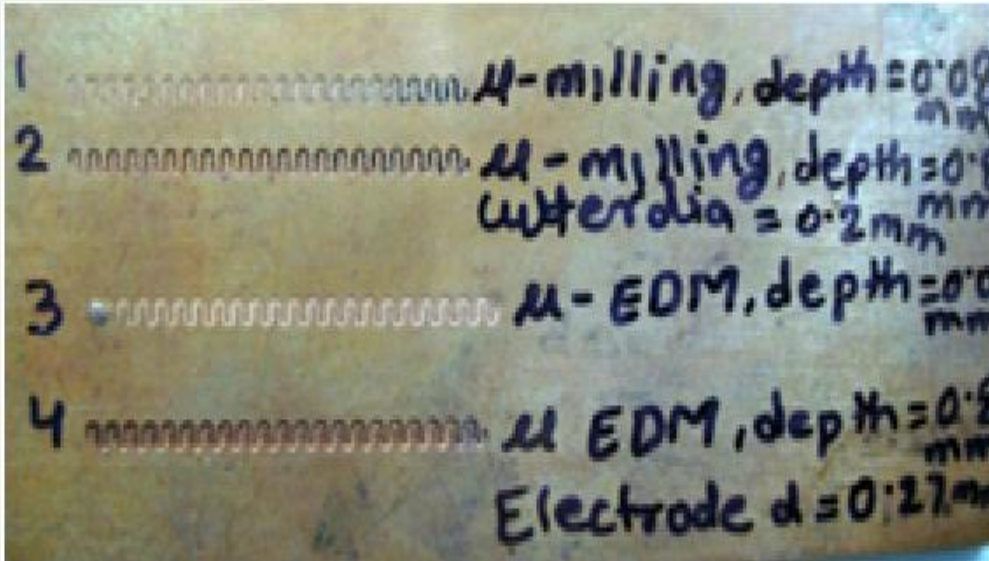 1 μ-milling, depth = 0.08
mm
2 μ-milling, depth = 0.
mm
Cutter dia = 0.2mm
3 μ- EDM, depth = 0.0
mm
4 μ EDM, depth = 0.8
mm
Electrode d = 0.27mm